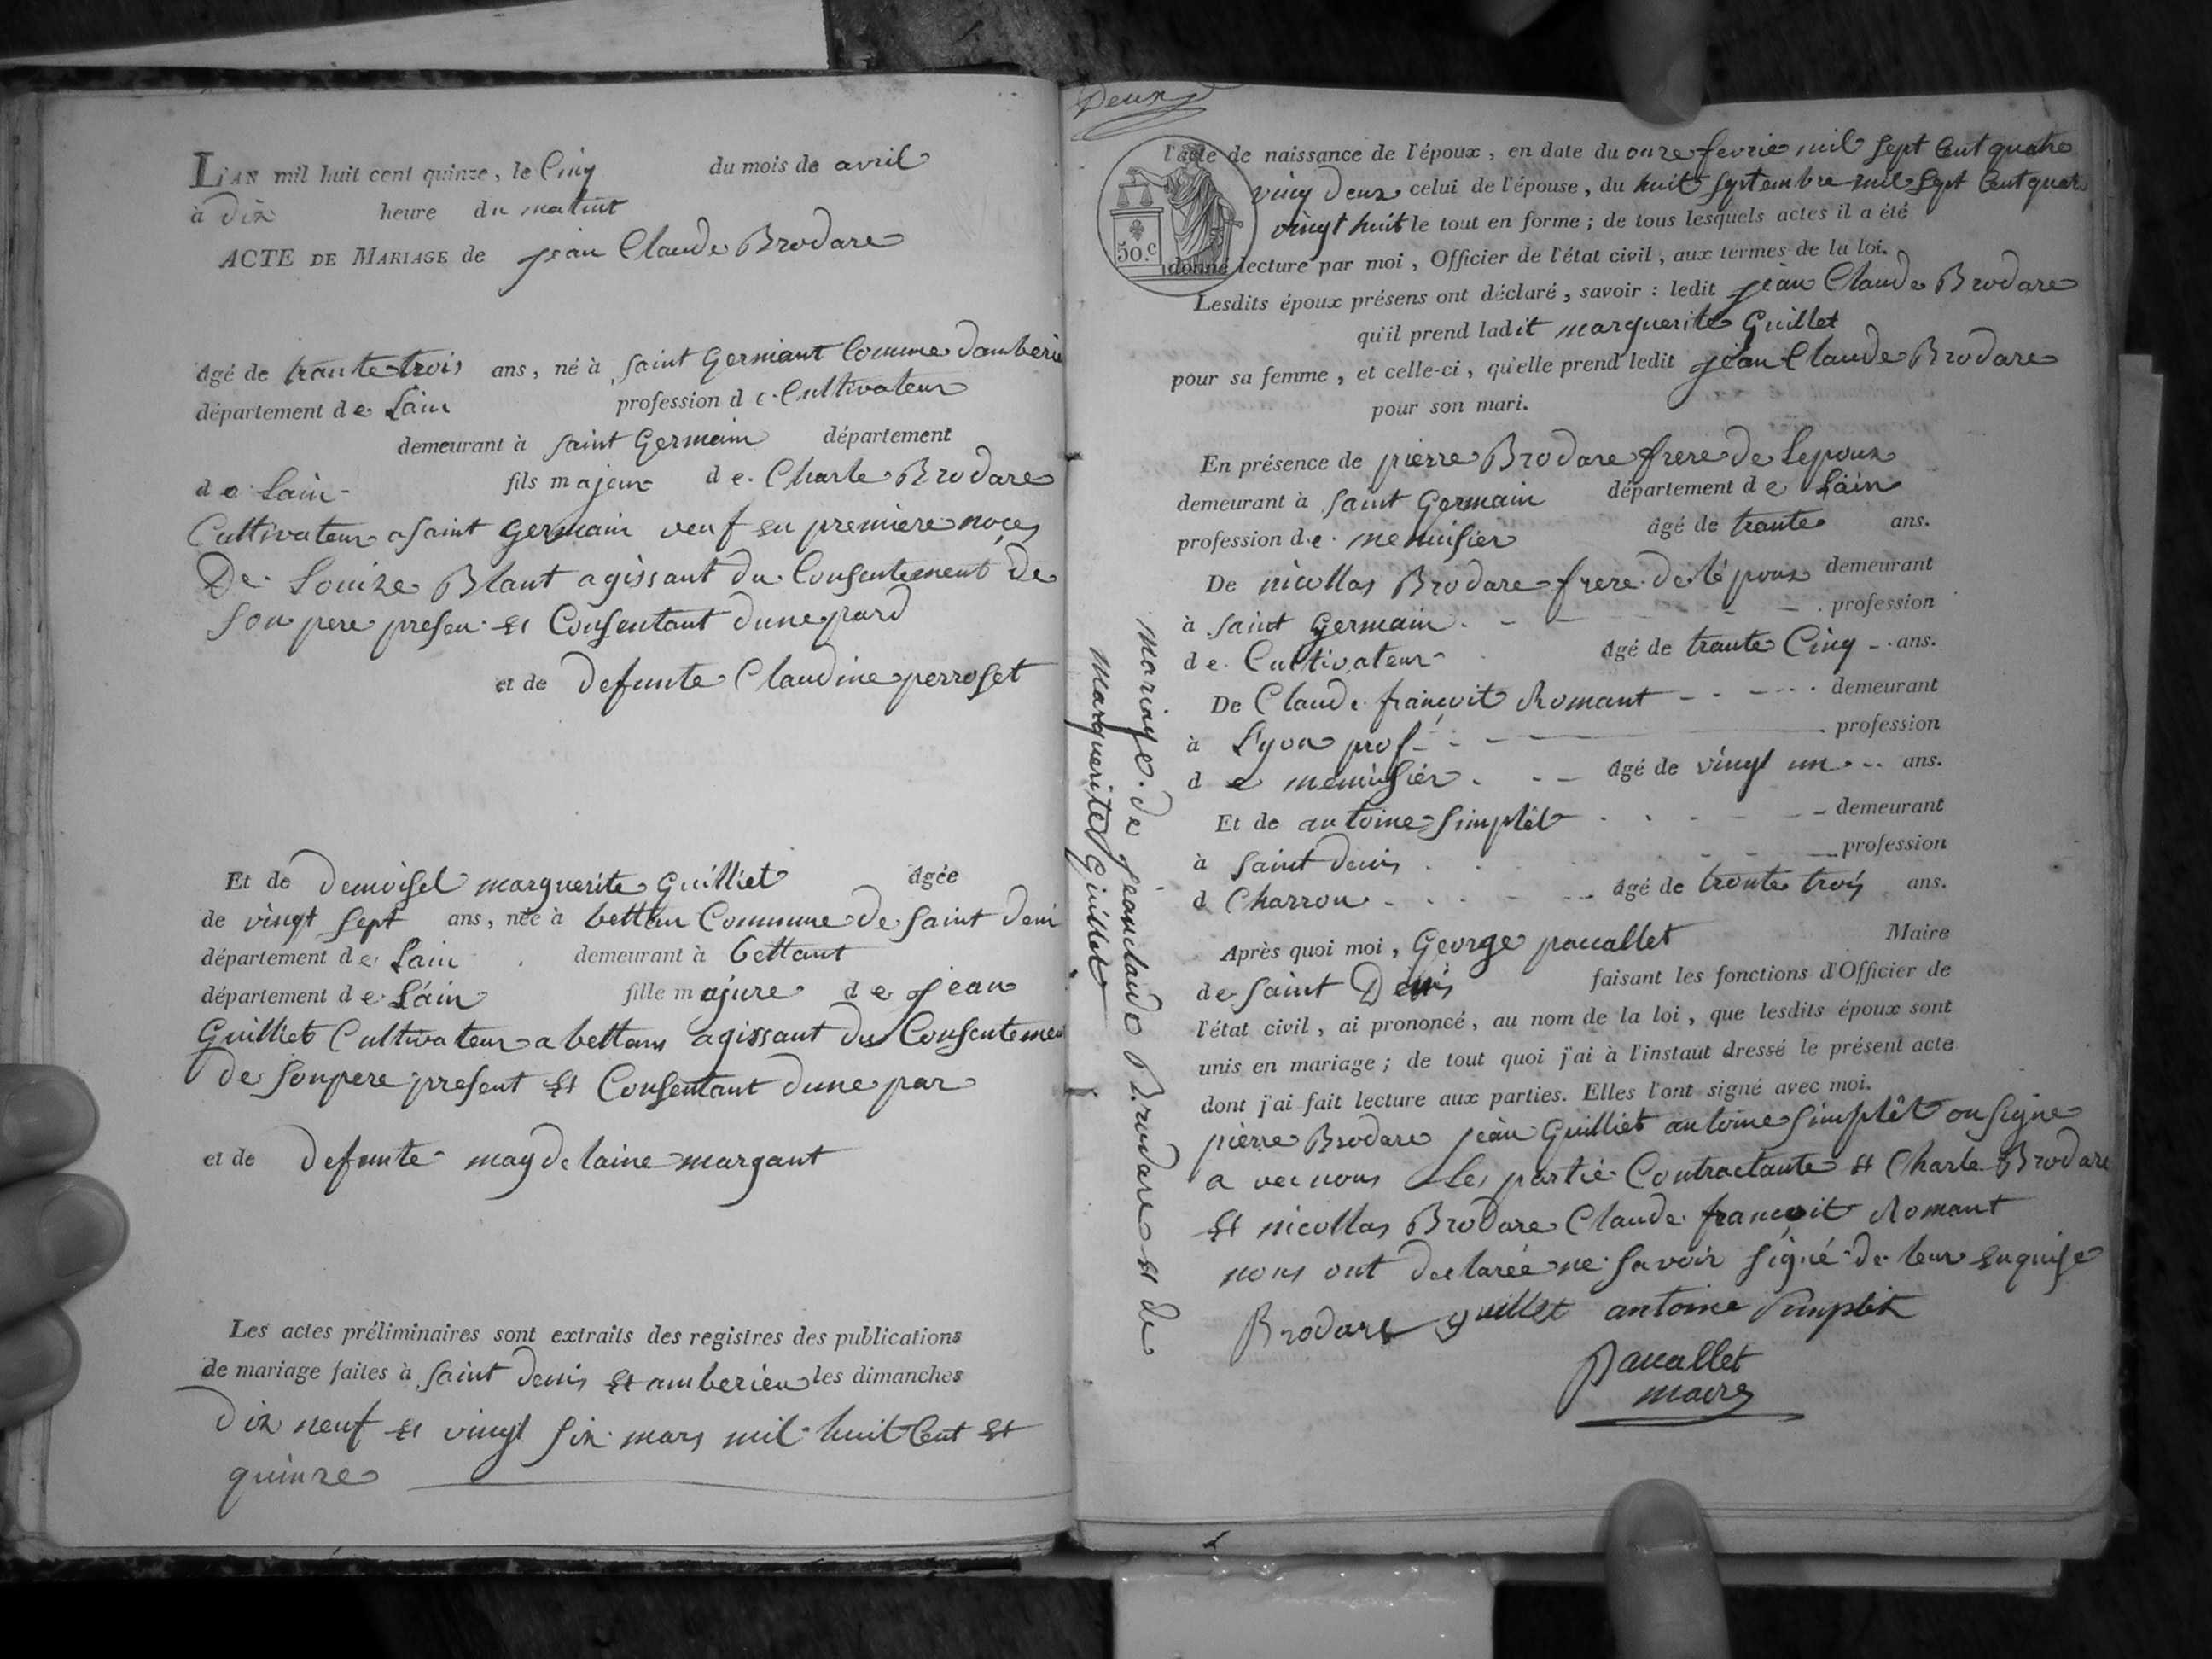 L'AN mil huit cent quinze, le Cinq du mois de avril
à Dix heure du matint
ACTE DE MARIAGE de jean Claude Brodare
âgé de trante trois ans, né à saint Germant Comune damberieu
département de Lain profession de Cultivateur
demeurant à saint Germain département
de Lain fils majeur de Charle Brodare
Cultivateur a saint Germain veuf en premiere noces
De Louize Blant agissant du Consentement de
son pere presen et Consentant dune pard
et de defunte Claudine perroset
Et de Demoisel marguerite Guilliet âgée
de vingt sept ans, née à bettan Commune de saint deni
département de Lain demeurant à bettant
département de Láin fille majure de jean
Guilliet Cultivateur a bettans agissant du Consentemen
de son pere present et Consentant dune par
et de defunte magdelaine margant
Les actes préliminaires sont extraits des registres des publications
de mariage faites à saint denis et amberieu les dimanches
Dix neuf et vingt six mars mil huit Cent et
quinze
Deux
50.c
l'acte de naissance de l'époux, en date du onze fevrie mil sept Cent quatre
vinq deux celui de l'épouse, du huit septembre mil sept Cent quatr
vingt huit le tout en forme; de tous lesquels actes il a été
donné lecture par moi, Officier de l'état civil, aux termes de la loi.
Lesdits époux présens ont déclaré, savoir: ledit jean Claude Brodare
qu'il prend ladit marguerite Guillet
pour sa femme, et celle-ci, qu'elle prend ledit jean Claude Brodare
pour son mari.
En présence de pierre Brodare frere de Lepoux
demeurant à saint Germain département de Láin
profession de menuisier âgé de trante ans.
De nicollas Brodare frere de lépoux demeurant
à saint Germain profession
de Cultivateur âgé de trante Cinq ans.
De Claude françoit Romant demeurant
à Lyon prof profession
de menuisier âgé de vingt un ans.
Et de antoine Simplêt demeurant
à saint denis profession
d Charron âgé de trante trois ans.
Après quoi moi, George paccallet Maire
de saint Denis faisant les fonctions d'Officier de
l'état civil, ai prononcé, au nom de la loi, que lesdits époux sont
unis en mariage; de tout quoi j'ai à l'instant dressé le présent acte
dont j'ai fait lecture aux parties. Elles l'ont signé avec moi.
pierre Brodare jean Guilliet antoine Simplêt on signe
a vec nous Les partie Contractante et Charle Brodare
et nicollas Brodare Claude françoit Romant
nous ont declarée ne savoir signé de leur enquise
Brodare guillet antoine Simplet
Paccallet
maire
mariage de jean claude Brodare et de
marguerite Guillet